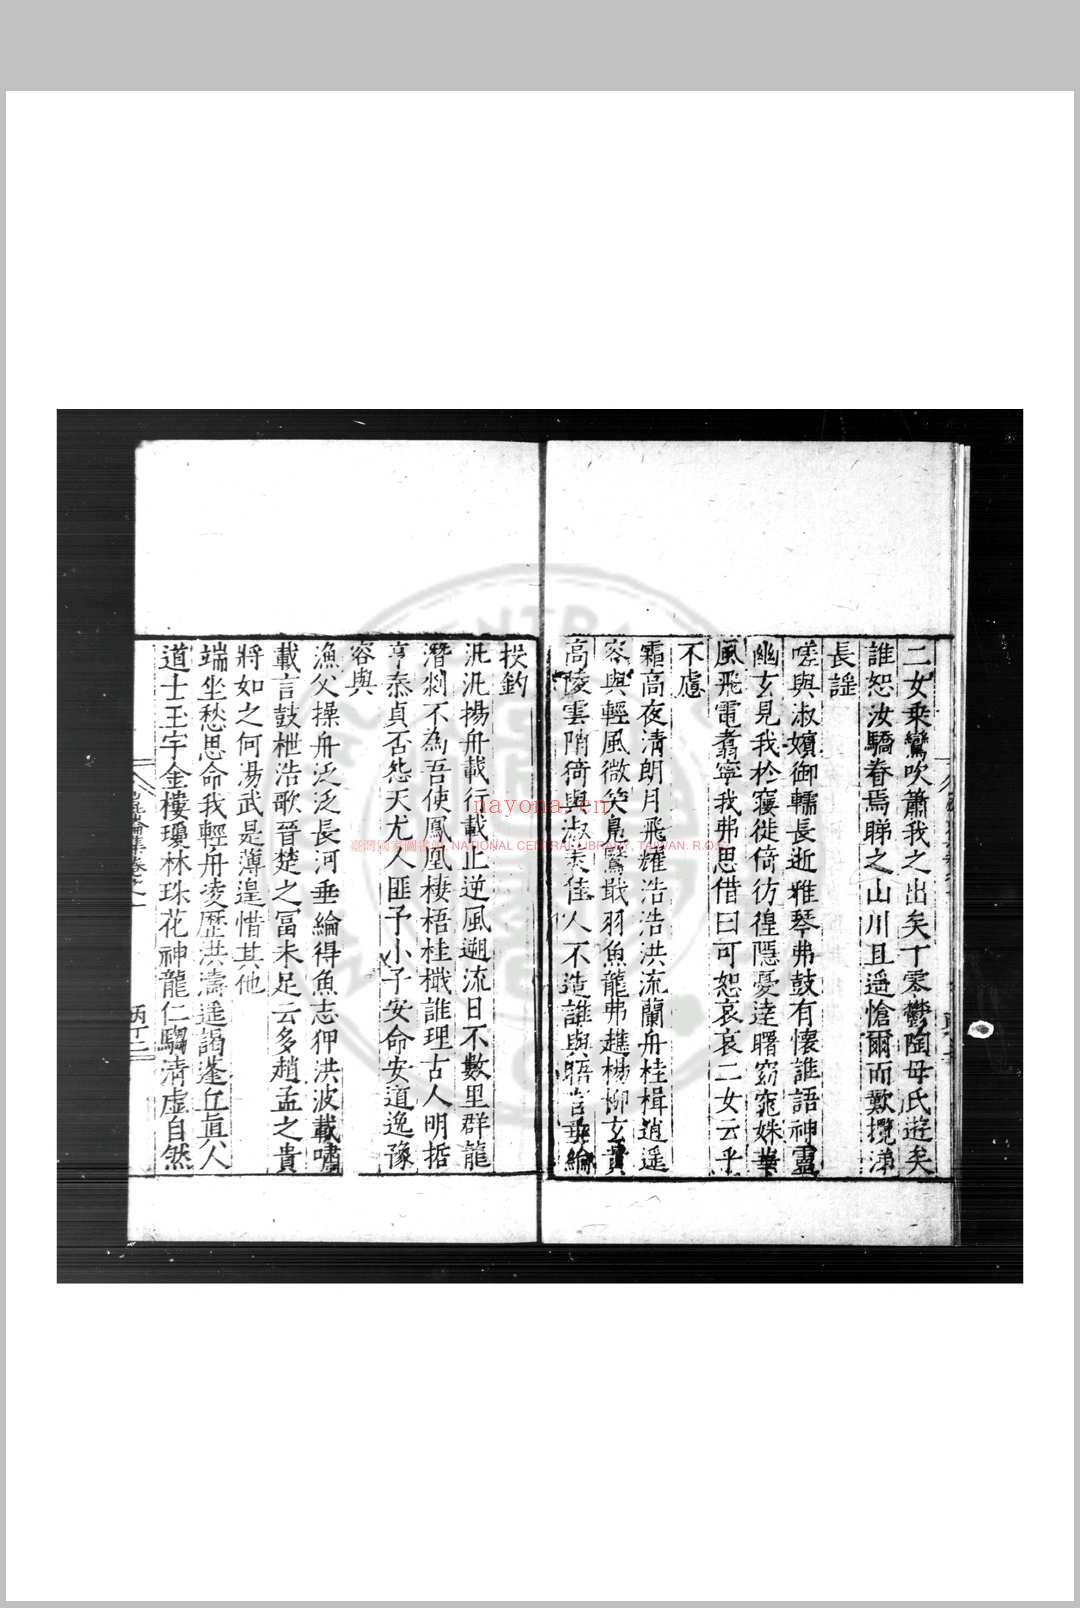 二女乘鸞吹簫我之出矣丁零鬱陶母氏遊矣
誰恕汝驕眷焉睇之山川且遥愴爾而歎攬涕
長謡
嗟與淑嬪御轜長逝雅琴弗鼓有懷誰語神靈
幽玄見我於寢徙倚彷徨隱憂達曙窈窕姝華
風飛電翥寧我弗思借曰可恕哀哀二女云乎
不慮
霜高夜淸朗月飛耀浩浩洪流蘭舟桂楫逍遥
容與輕風微笑鳧鷖戢羽魚龍弗趭楊柳玄貫
高陵雲隋猗與淑美佳人不造誰與晤言垂綸
投釣
汎汎揚舟載行載止逆風遡流日不數里群龍
潛剡不為吾使鳳凰棲梧桂檝誰理古人明哲
亨泰貞否怨天尤人匪予小子安命安道逸豫
容與
漁父操舟泛泛長河垂綸得魚志狎洪波載嘯
載言鼓枻浩歌晉楚之富未足云多趙孟之貴
將如之何湯武是薄遑惜其他
端坐愁思命我輕舟凌歷洪濤遥謁蓬丘真人
道士玉宇金樓瓊林珠花神龍仁騶淸虛自然
nayona.cn
臺灣國家圖書館, NATIONAL CENTRAL LIBRARY, TAIWAN. R.O.C.